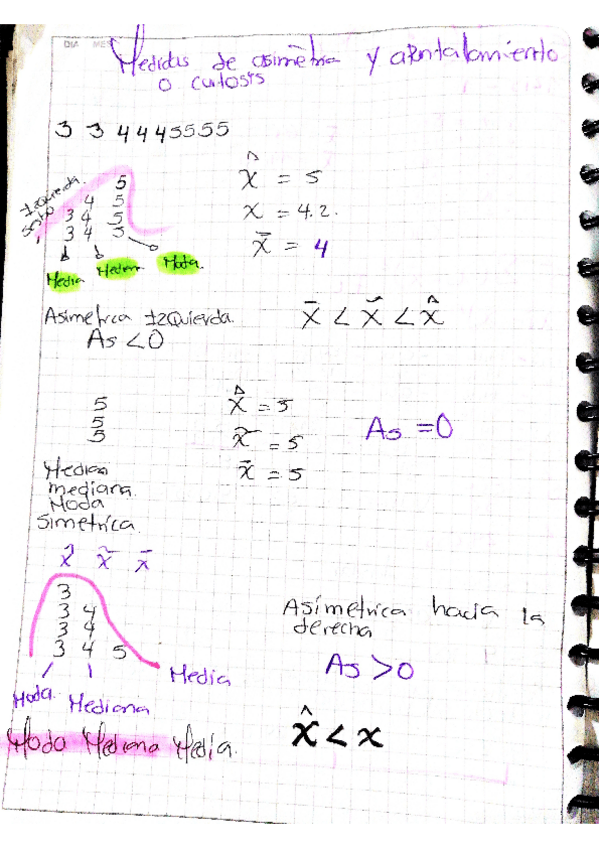 DIA MES
Medidas de asimetria y apuntalamiento
o curtosis
3 3 4 4 4 5 5 5 5
5
4 5
3 4 5
3 4 5
Izquierda.
Sesgo
x̂ = 5
x = 4.2.
x̄ = 4
Media Median Moda.
Asimetrica Izquierda.
As < 0
x̄ < x̃ < x̂
5
5
5
x̂ = 5
x̃ = 5
x̄ = 5
As = 0
Media
mediana.
Moda
Simetrica.
x̂ x̃ x̄
3
3 4
3 4
3 4 5
Moda. Mediana Media
Asimetrica hacia la
derecha
As > 0
x̂ < x
Moda Mediana Media.